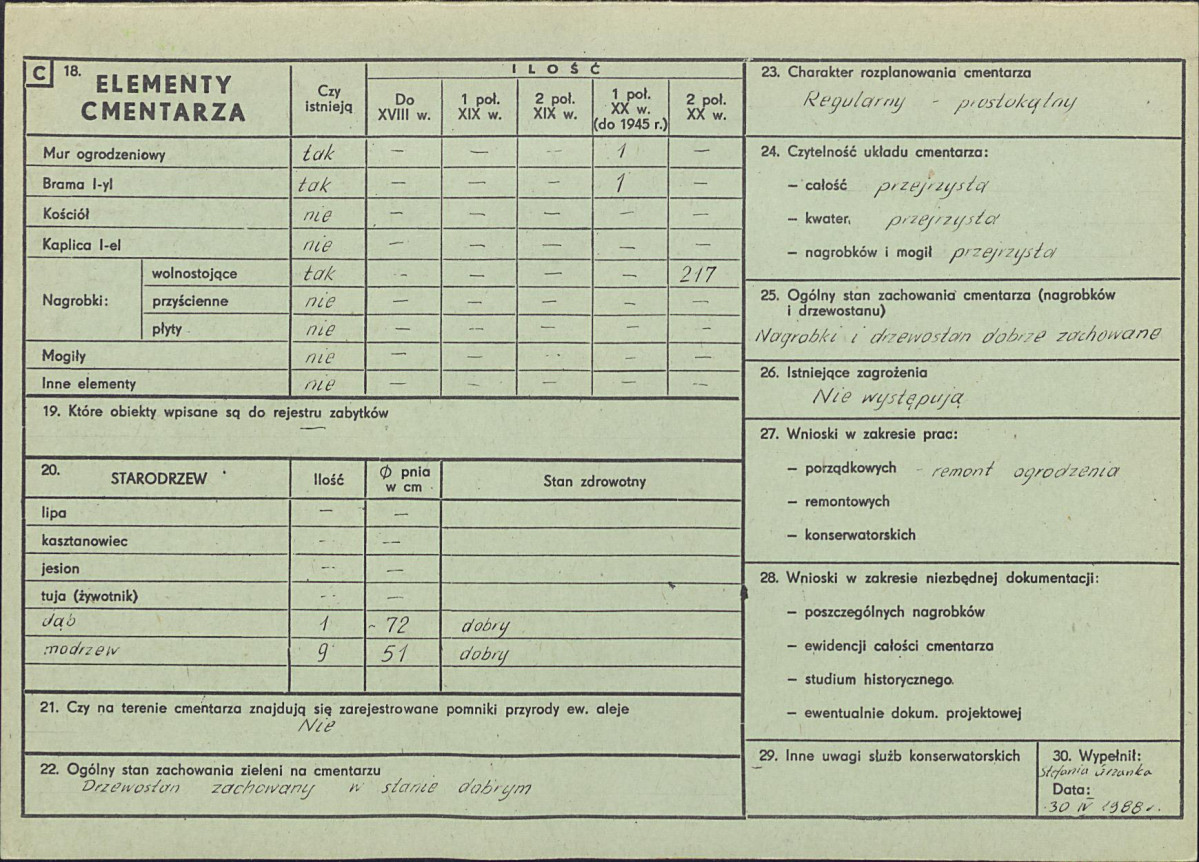 C 18. ELEMENTY CMENTARZA
Czy istnieją
ILOŚĆ
Do XVIII w.
1 poł. XIX w.
2 poł. XIX w.
1 poł. XX w. (do 1945 r.)
2 poł. XX w.
Mur ogrodzeniowy tak — — — 1 —
Brama l-yl tak — — — 1 —
Kościół nie — — — — —
Kaplica l-el nie — — — — —
Nagrobki: wolnostojące tak - — — — 217
przyścienne nie — — — — —
płyty nie — — — — —
Mogiły nie — — — — —
Inne elementy nie — — — — —
19. Które obiekty wpisane są do rejestru zabytków
—
20. STARODRZEW Ilość Ø pnia w cm Stan zdrowotny
lipa — —
kasztanowiec - —
jesion — —
tuja (żywotnik) - —
dąb 1 - 72 dobry
modrzew 9 51 dobry
21. Czy na terenie cmentarza znajdują się zarejestrowane pomniki przyrody ew. aleje
Nie
22. Ogólny stan zachowania zieleni na cmentarzu
Drzewostan zachowany w stanie dobrym
23. Charakter rozplanowania cmentarza
Regularny - prostokątny
24. Czytelność układu cmentarza:
— całość przejrzysta
— kwater, przejrzysta
— nagrobków i mogił przejrzysta
25. Ogólny stan zachowania cmentarza (nagrobków
i drzewostanu)
Nagrobki i drzewostan dobrze zachowane
26. Istniejące zagrożenia
Nie występują
27. Wnioski w zakresie prac:
— porządkowych - remont ogrodzenia
— remontowych
— konserwatorskich
28. Wnioski w zakresie niezbędnej dokumentacji:
— poszczególnych nagrobków
— ewidencji całości cmentarza
— studium historycznego.
— ewentualnie dokum. projektowej
29. Inne uwagi służb konserwatorskich
30. Wypełnił:
Stefania
Data:
30 IV 1988 r.